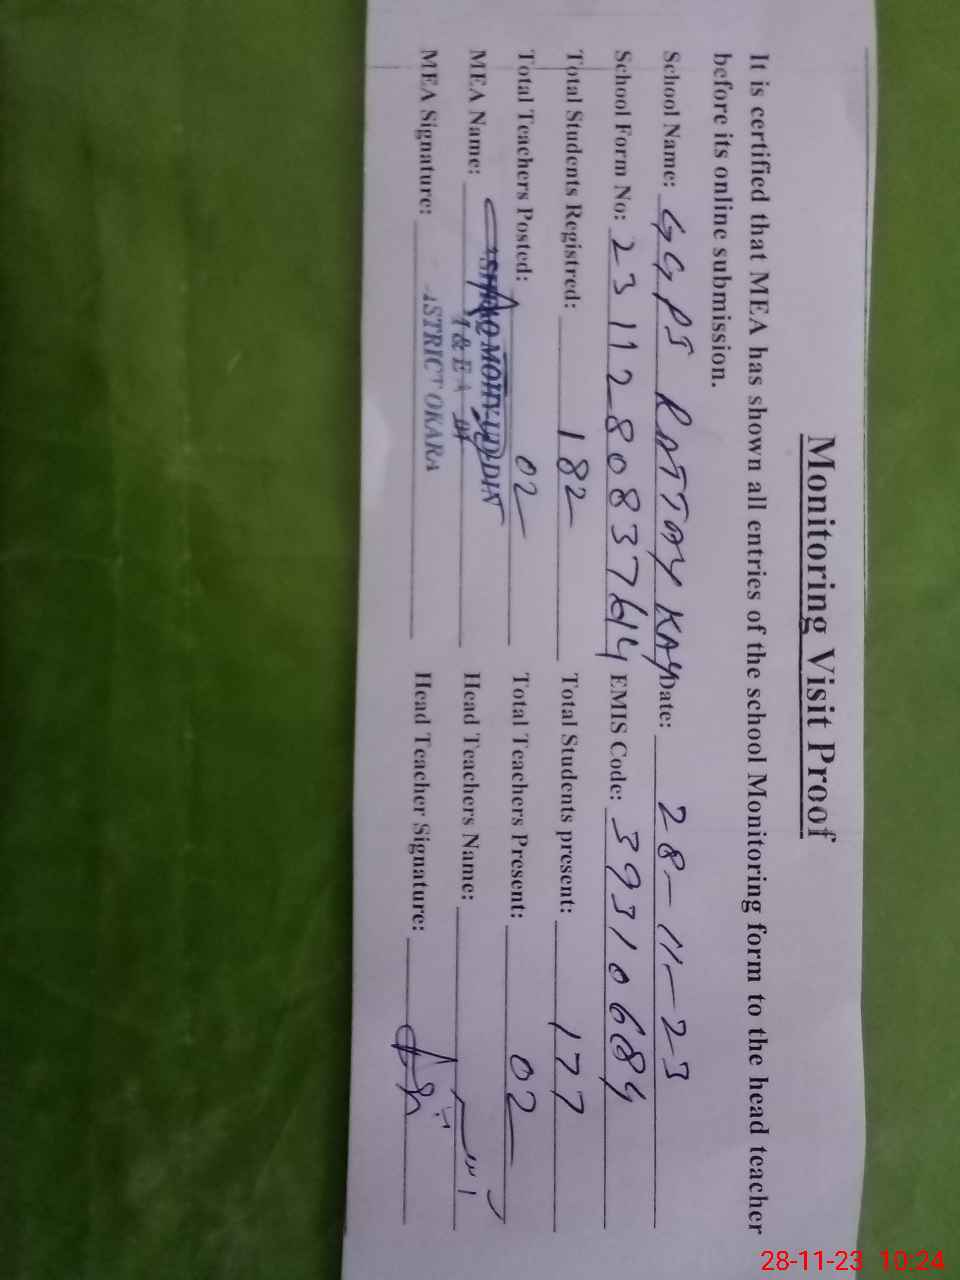 Monitoring Visit Proof
It is certified that MEA has shown all entries of the school Monitoring form to the head teacher
before its online submission.
School Name: GGPS RATTAY KAY Date: 28-11-23
School Form No: EMIS Code: 39310684
Total Students Registred: 182 Total Students present: 177
Total Teachers Posted: 02 Total Teachers Present: 02
MEA Name: MOHY-UD-DIN Head Teachers Name:
MEA Signature: Head Teacher Signature:
OKARA
28-11-23 10:24